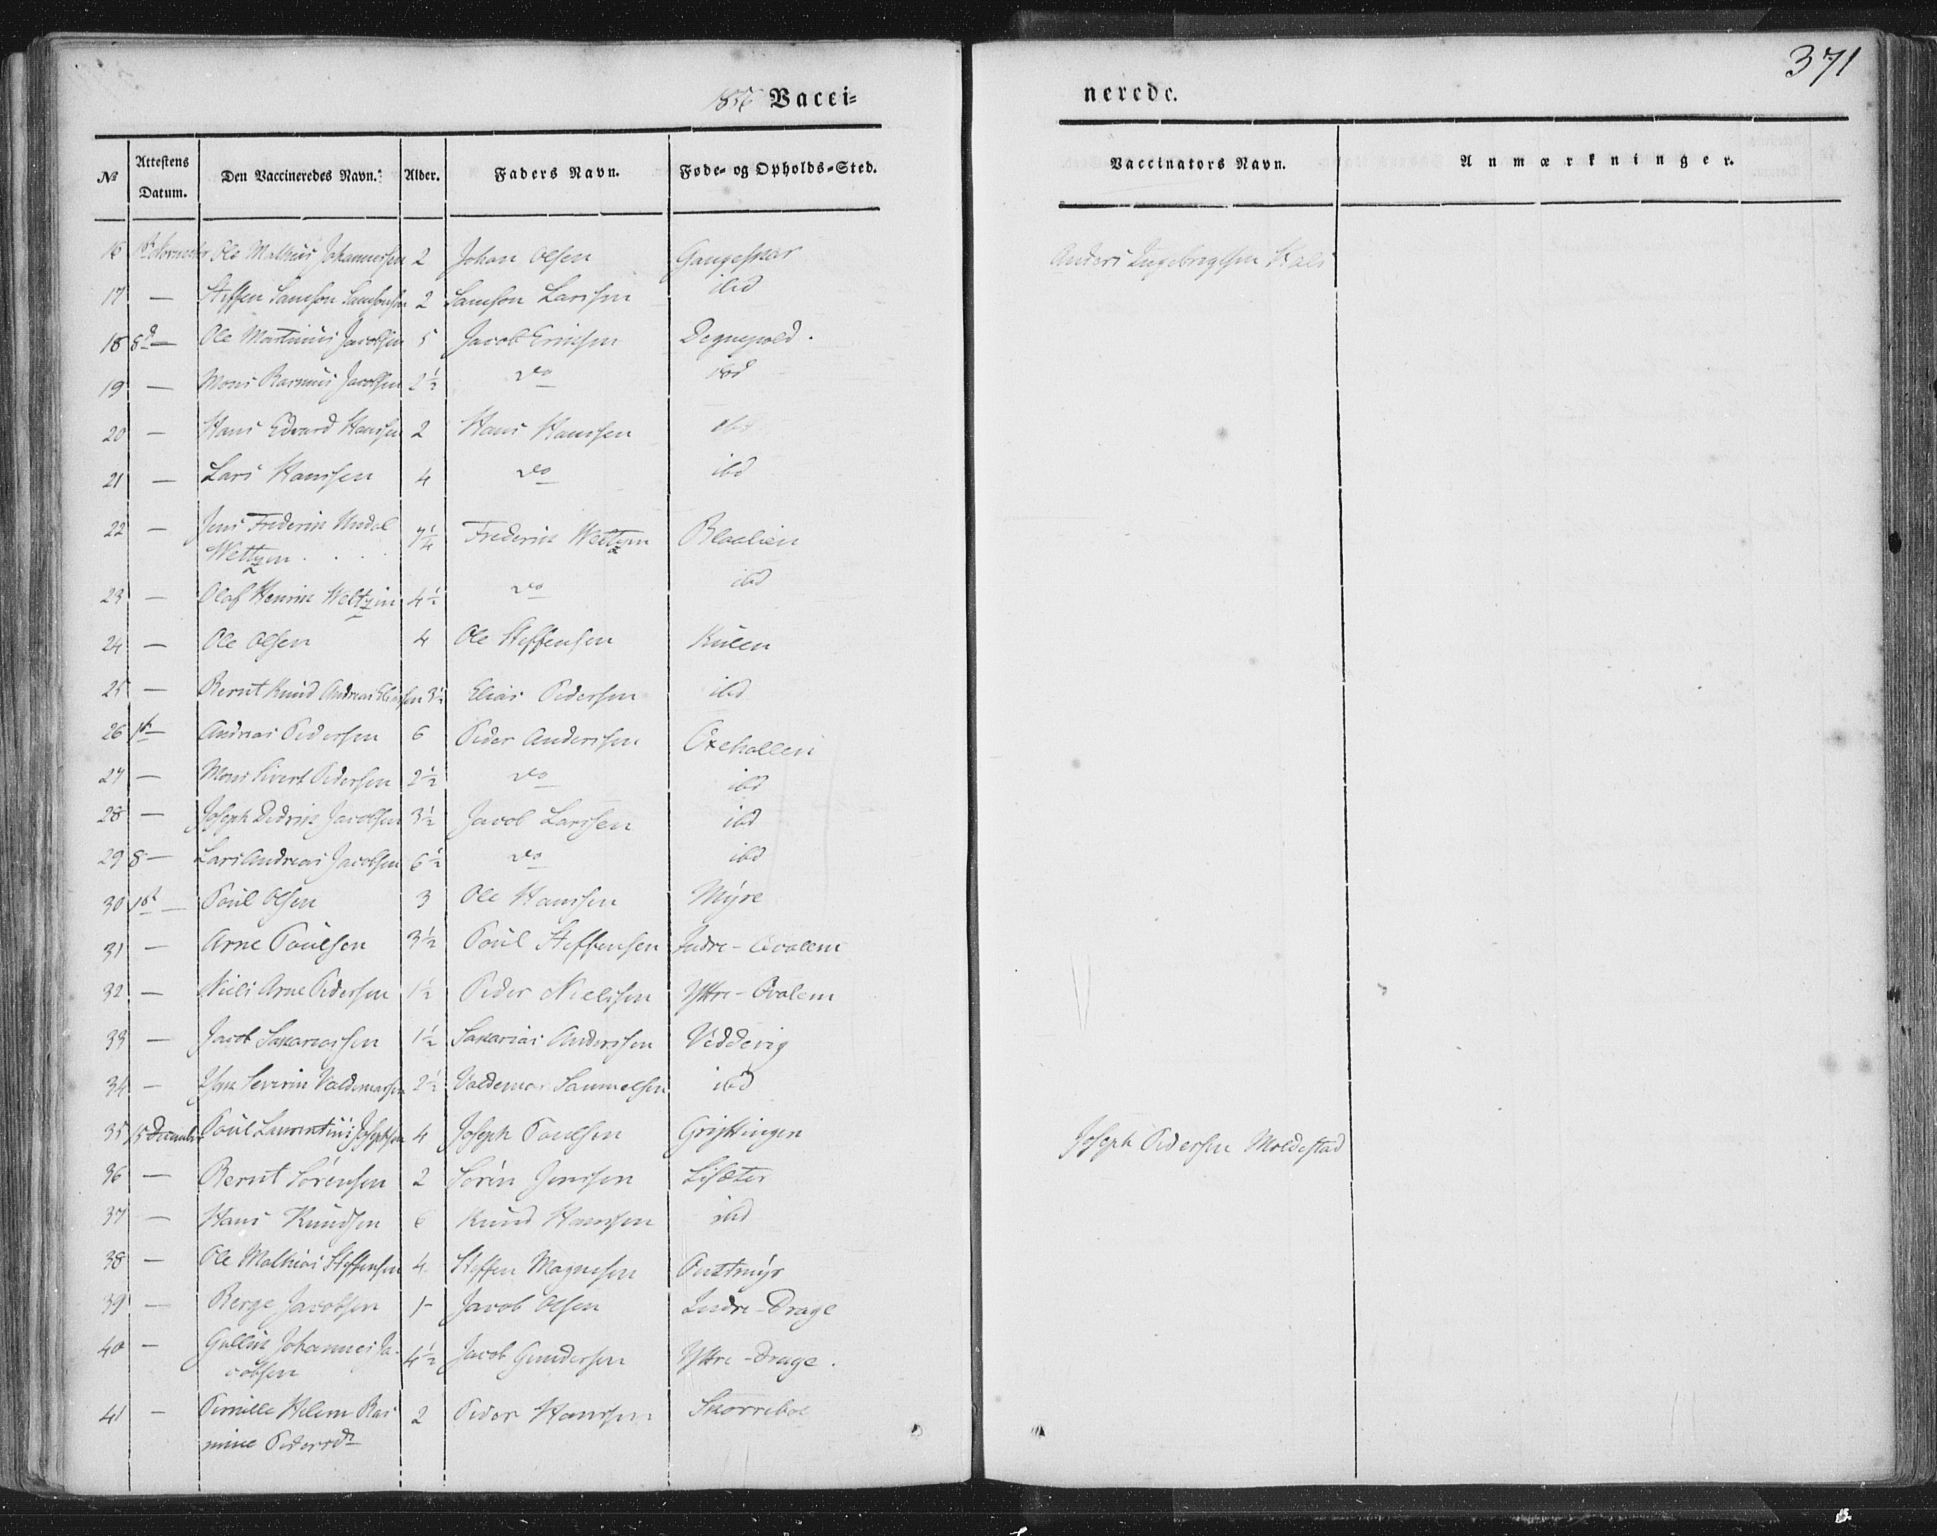 371
Vacci=
nerede.
№ Attestens Datum. Den Vaccineredes Navn. Alder. Faders Navn. Føde- og Opholds-Sted. Vaccinators Navn. Anmærkninger.
16 Ole Mathias Johannessen 2 Johan Olsen
17 — Steffen Samson Samsonsen 2 Samson Larssen ibd
18 8d — Ole Martinus Jacobsen 5 Jacob Eriksen Degnepold.
19 — Mons Rasmus Jacobsen 2½ do ibd
20 — Hans Edvard Hanssen 2 Hans Hanssen ibd
21 — Lars Hanssen 4 do ibd
22 — Jens Frederik
Weltzin 7¼ Frederik Weltzin Blaalien
23 — Olaf Henrik Weltzin 4½ do ibd
24 — Ole Olsen 4 Ole Steffensen
25 — Bernt Knud Andreas Eliassen 3½ Elias Pedersen ibd
26 Andreas Pedersen 6 Peder Anderssen Oxehollen
27 — Mons Sivert Pedersen 2½ do ibd
28 — Joseph Didrik Jacobsen 3½ Jacob Larssen ibd
29 8 — Lars Andreas Jacobsen 6½ do ibd
30 Poul Olsen 3 Ole Hanssen Myre
31 — Arne Poulsen 3½ Poul Steffensen Indre-Hvalem
32 — Niels Arne Pedersen 1½ Peder Nielssen Yttre-Hvalem
33 — Jacob Sakariassen 1½ Sakarias Anderssen Veddevig
34 — Severin Valdemarsen 2½ Valdemar Sammelsen ibd
35 15 December Poul Laurentius Josephsen 4 Joseph Poulsen Gryttingen Joseph Pedersen Moldestad
36 — Bernt Sørensen 2 Sørin Jenssen Lisæter
37 — Hans Knudsen 6 Knud Hanssen ibd
38 — Ole Mathias Steffensen 4 Steffen Magnesen
39 — Berge Jacobsen 1 — Jacob Olsen Indre-Drage
40 — Gullik Johannes Ja-
cobsen 4½ Jacob Gundersen Yttre-Drage.
41 — Pernille Helene Ras
mine Pedersdr 2 Peder Hanssen